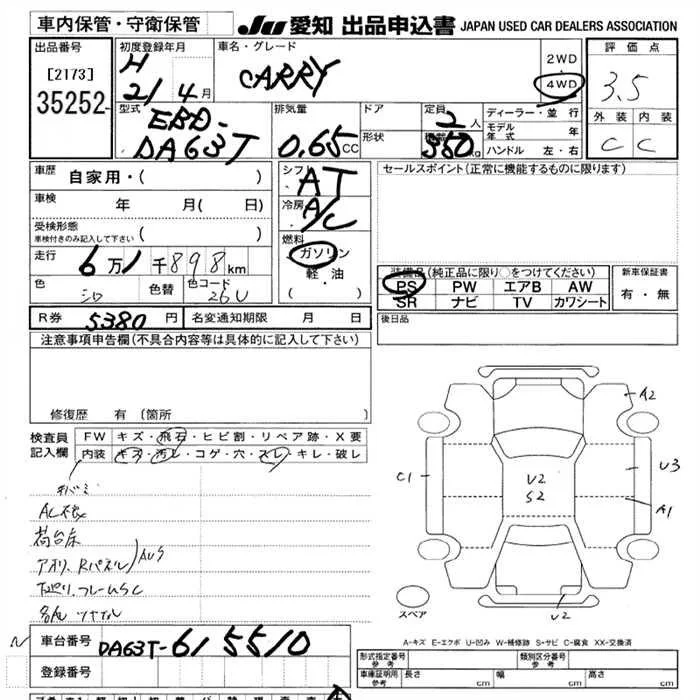 車内保管・守衛保管
JU 愛知 出品申込書 JAPAN USED CAR DEALERS ASSOCIATION
出品番号
[2173]
35252
初度登録年月
H
21年4月
車名・グレード
CARRY
2WD
・
4WD
評価点
3.5
外装 内装
C C
型式
EBD-
DA63T
排気量
0.65 CC
ドア
形状
定員
2人
積載
350kg
ディーラー・並行
モデル年式 年
ハンドル 左・右
車歴 自家用・( )
車検 年 月( 日)
受検形態
車検付きのみ記入して下さい ( )
走行 6万1千898km
色 シロ 色替 色コード 26U
シフト
AT
冷房
A/C
燃料
ガソリン
軽・油
・( )
セールスポイント(正常に機能するものに限ります)
装備品(純正品に限り○をつけてください)
PS PW エアB AW
SR ナビ TV カワシート
新車保証書
有・無
R券 5380円 名変通知期限 月 日
後日品
注意事項申告欄(不具合内容等は具体的に記入して下さい)
修復歴 有(箇所
検査員
記入欄
FW キズ・飛石・ヒビ割・リペア跡・X要
内装 キズ・汚レ・コゲ・穴・スレ・キレ・破レ
荷台床
アオリ、Rパネル AUS
下廻り、フレームSC
A2
C1
U2
S2
U3
A1
U2
スペア
A-キズ E-エクボ U-凹み W-補修跡 S-サビ C-腐食 XX-交換済
車台番号 DA63T-615510
登録番号
形式指定番号
参考
類別区分番号
参考
車庫証明用
参考
長さ cm 幅 cm 高さ cm